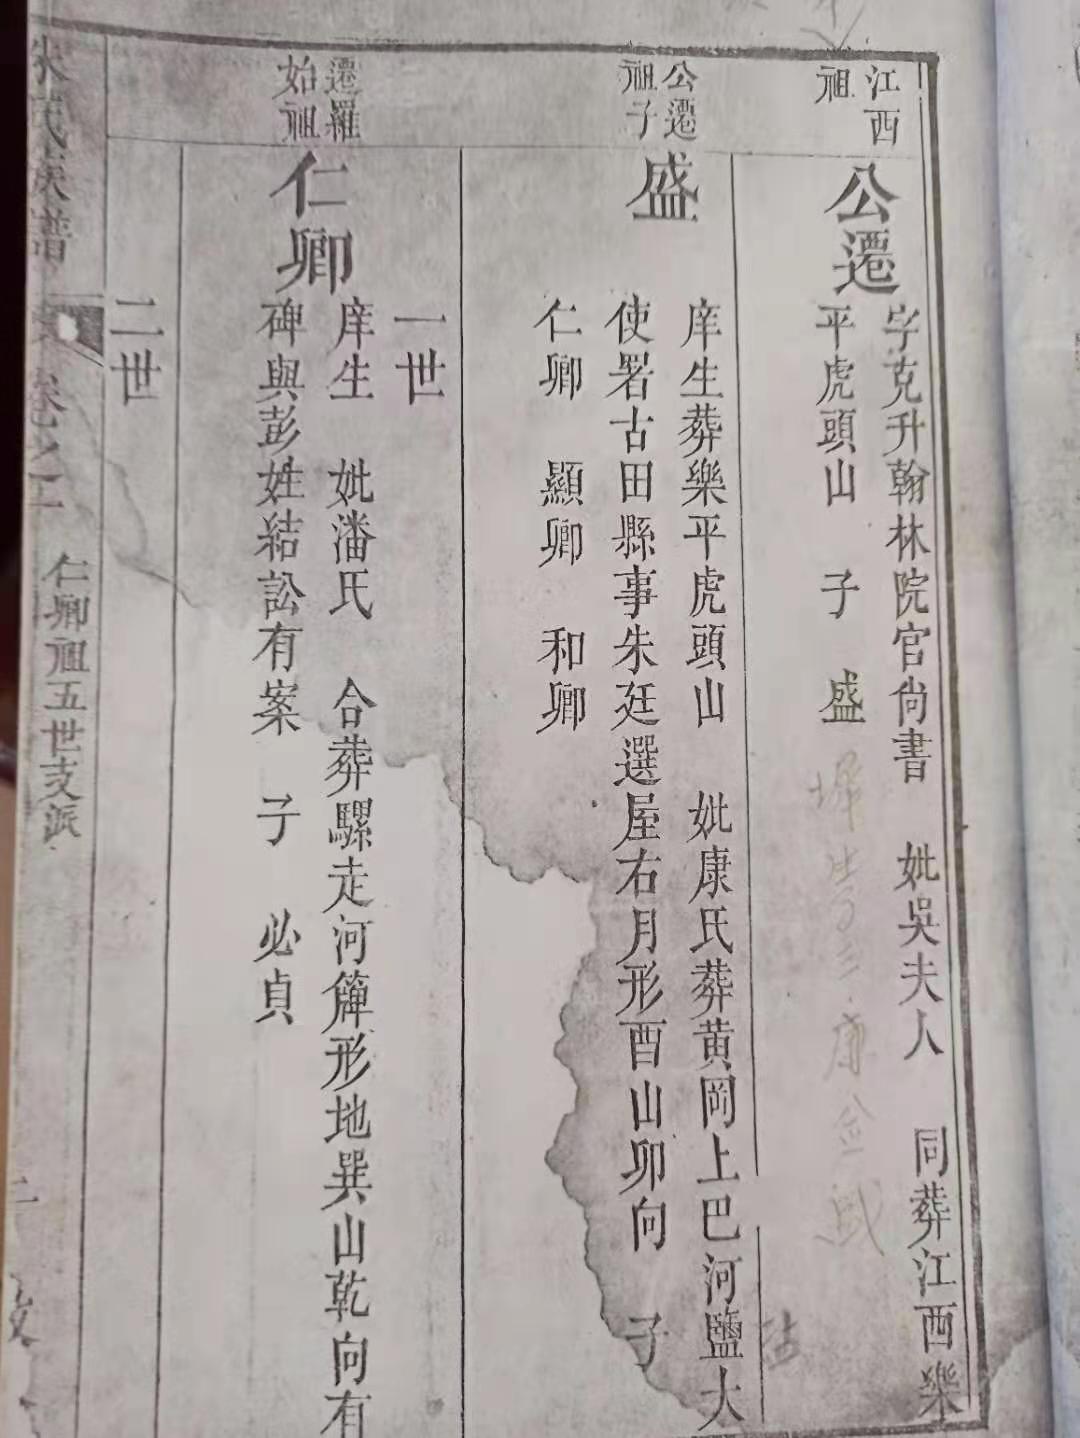 江西
祖
公遷
字克升翰林院官尚書 妣吳夫人 同葬江西樂
平虎頭山 子 盛
公遷
祖子
盛
庠生葬樂平虎頭山 妣康氏葬黄岡上巴河鹽大
使署古田縣事朱廷選屋右月形酉山卯向 子
仁卿 顯卿 和卿
一世
遷羅
始祖
仁卿
庠生 妣潘氏 合葬騾走河簰形地巽山乾向有
碑與彭姓結訟有案 子 必貞
二世
朱氏族譜
卷之
仁卿祖五世支派